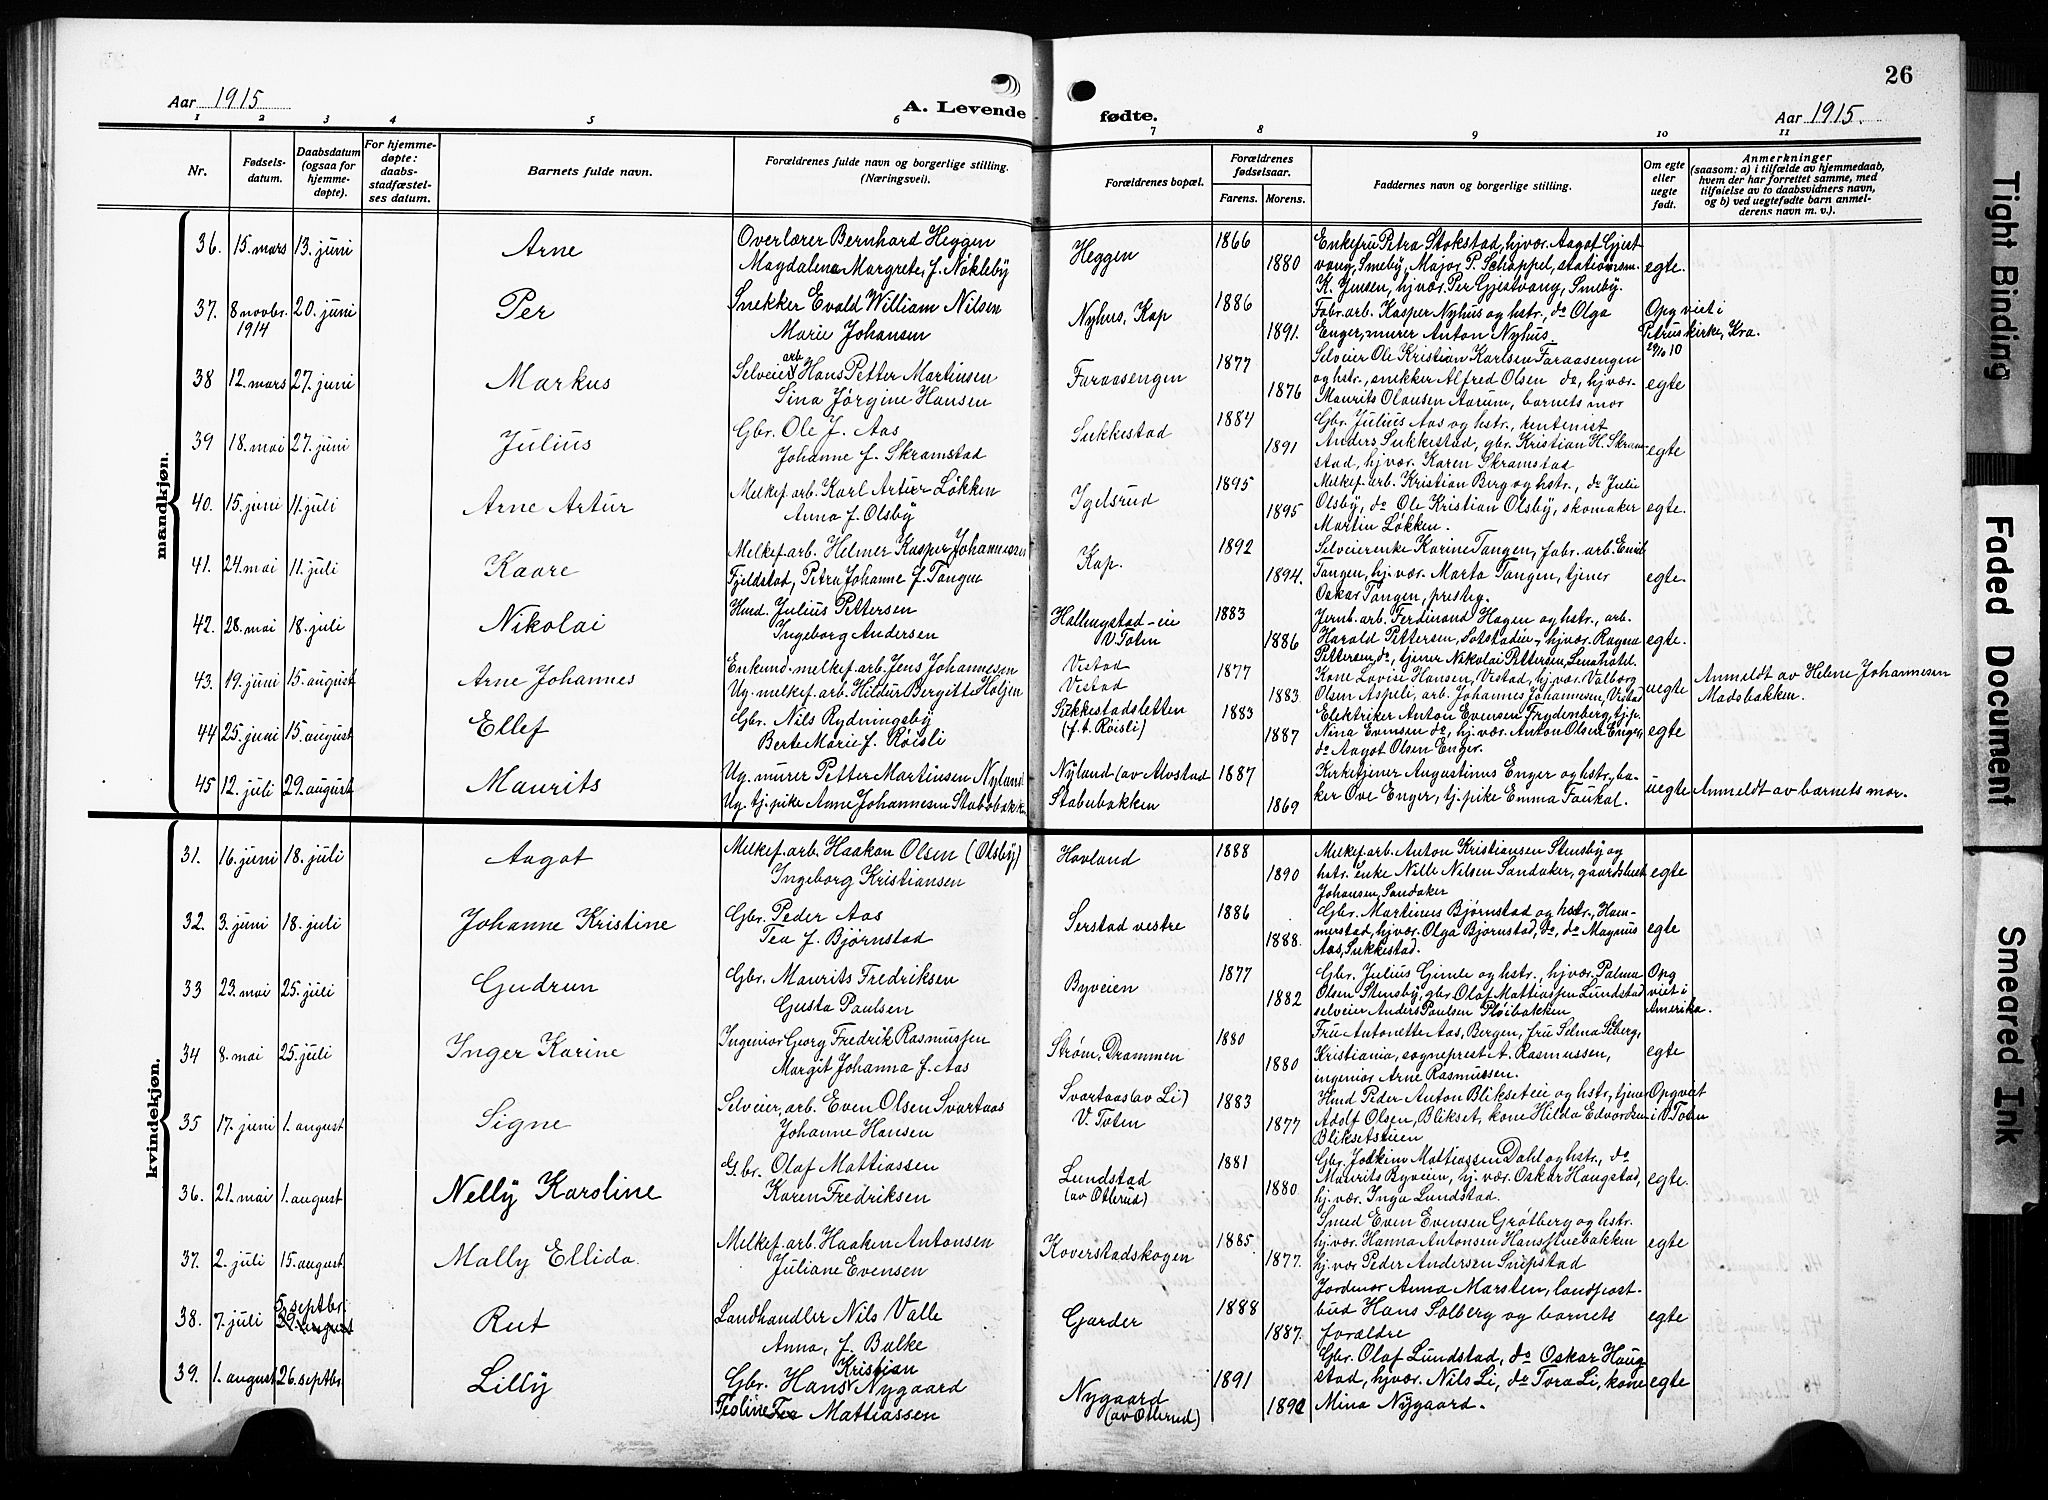 26
Aar 1915
A. Levende fødte.
Aar 1915.
1 2 3 4 5 6 7 8 9 10 11
Nr.
Fødsels-
datum.
Daabsdatum
(ogsaa for
hjemme-
døpte).
For hjemme-
døpte:
daabs-
stadfæstel-
ses datum.
Barnets fulde navn.
Forældrenes fulde navn og borgerlige stilling.
(Næringsvei).
Forældrenes bopæl.
Forældrenes
fødselsaar.
Farens. Morens.
Faddernes navn og borgerlige stilling.
Om egte
eller
uegte
født.
Anmerkninger
(saasom: a) i tilfælde av hjemmedaab,
hvem der har forrettet samme, med
tilføielse av to daabsvidners navn,
og b) ved uegtefødte barn anmel-
derens navn m. v.).
mandkjøn.
36. 15. mars 13. juni Arne
Overlærer Bernhard Heggen
Magdalena Margrete, f. Nøkleby
Heggen 1866 1880
Enkefru Petra Stokstad, hj.vær. Aagot Gjest-
vang, Smeby, Major P. Schappel, stationsm.
K. Jensen, hj.vær. Per Gjestvang, Smeby.
egte.
37. 8 novbr. 1914 20. juni Per
Snekker Evald William Nilsen
Marie Johansen
Nyhus, Kap 1886 1891.
Fabr. arb. Kasper Nyhus og hstr., do Olga
Enger, murer Anton Nyhus
Opg viet i
Petrus kirke, Kra.
29/10 10
38 12. mars 27. juni Markus
Selveier arb Hans Petter Martinsen
Sina Jørgine Hansen
Faraasengen 1877 1876
Selveier Ole Kristian Karlsen Faraasengen
og hstr., snekker Alfred Olsen do, hj.vær.
Maurits Olausen Aarum, barnets mor
egte
39 18. mai 27. juni Julius
Gbr. Ole J. Aas
Johanne f. Skramstad
Sukkestad 1884 1891
Gbr. Julius Aas og hstr., rentenist
Anders Sukkestad, gbr. Kristian H. Skram-
stad, hj.vær. Karen Skramstad
egte
40. 15. juni 11. juli Arne Artur
Melkef. arb. Karl Artur Løkken
Anna f. Olsby
Igelsrud 1895 1895
Melkef. arb. Kristian Berg og hstr., do Julie
Olsby, do Ole Kristian Olsby, skomaker
Martin Løkken.
egte.
41. 24. mai 11. juli Kaare
Melkef. arb. Helmer Kasper Johannessen
Fjeldstad, Petra Johanne f. Tangen
Kap. 1892 1894.
Selveierenke Karine Tangen, fabr. arb. Emil
Tangen, hj. vær. Marta Tangen, tjener
Oskar Tangen, presteg.
egte.
42. 28. mai 18. juli Nikolai
Husd. Julius Pettersen
Ingeborg Andersen
Hallingstad-eie
V. Toten 1883 1886
Jernb. arb. Ferdinand Hagen og hstr., arb.
Harald Pettersen, Sotstadeie, hj.vær. Ragna
Pettersen, do, tjener Nikolai Pettersen, Lenahotel.
egte.
43. 19. juni 15. august Arne Johannes
Enkemd. melkef. arb. Jens Johannesen
Ug. melkef. arb. Hildur Bergitte Holjen
Vistad
Vistad 1877 1883
Kone Lovise Hansen, Vistad, hj.vær. Valborg
Olsen Aspeli, arb. Johannes Johannesen, Vistad
uegte
Anmeldt av Helene Johannesen
Madsbakken.
44 25. juni 15. august Ellef
Gbr. Nils Rydningsby
Berte Marie f. Røisli
Sukkestadsletten
(f. t. Røisli) 1883 1887
Elektriker Anton Evensen Frydenberg, tj.p.
Nina Evensen do, hj. vær. Anton Olsen Enger,
do Aagot Olsen Enger.
egte
45 12. juli 29. august Maurits
Ug. murer Petter Martinsen Nyland
Ug. tj. pike Anne Johannesen Stabobakk.
Nyland (av Alvstad
Stabubakken 1887 1869
Kirketjener Augustinus Enger og hstr., ba-
ker Ove Enger, tj. pike Emma Faukal.
uegte Anmeldt av barnets mor.
kvindekjøn.
31. 16. juni 18. juli Aagot
Melkef. arb. Haakon Olsen (Olsby)
Ingeborg Kristiansen
Hovland 1888 1890
Melkef. arb. Anton Kristiansen Stensby og
hstr. enke Nille Nilsen Sandaker, gaardsbest
Johansen, Sandaker
egte
32. 3. juni 18. juli Johanne Kristine
Gbr. Peder Aas
Tea f. Bjørnstad
Serstad vestre 1886 1888.
Gbr. Martinus Bjørnstad og hstr., Ham-
merstad, hj.vær. Olga Bjørnstad, do, do Magnus
Aas, Sukkestad.
egte
33 23. mai 25. juli Gudrun
Gbr. Maurits Fredriksen
Gusta Paulsen
Byveien 1877 1882
Gbr. Julius Gimle og hstr., hj.vær. Palma
Olsen Stensby, gbr. Olaf Mattiassen Lundstad
selveier Anders Paulsen Pløibakken
Opg
viet i
Amerika.
34 8. mai 25. juli Inger Karine
Ingeniør Georg Fredrik Rasmussen
Margit Johanna f. Aas
Strøm, Drammen 1880 1880
Fru Antonette Aas, Bergen, fru Selma Seberg,
Kristiania, sogneprest A. Rasmussen,
ingeniør Arne Rasmussen.
egte
35 17. juni 1. august Signe
Selveier, arb. Even Olsen Svartaas
Johanne Hansen
Svartaas (av Li)
V. Toten 1883 1877
Husd Peder Anton Blikseteie og hstr., tjener
Adolf Olsen, Blikset, kone Hilda Edvardsen
Bliksetstuen
Opg viet
i V. Toten
36. 21. mai 1. august Nelly Karoline
Gbr. Olaf Mattiassen
Karen Fredriksen
Lundstad
(av Otterud) 1881 1880
Gbr. Joakim Mattiassen Dahl og hstr., do
Maurits Byveien, hj. vær. Oskar Haugstad,
hj. vær. Inga Lundstad.
egte.
37. 2. juli 15. august Mally Ellida.
Melkef. arb. Haakon Antonsen
Juliane Evensen
Koverstadskogen 1885. 1877.
Smed Even Evensen Grøtberg og hstr.
hj.vær. Hanna Antonsen Hansstuebakken
hj. vær Peder Andersen Snipstad
egte
38. 7. juli 5. septbr. 29. august Rut
Landhandler Nils Valle
Anna, f. Balke
Gjarder 1888 1887.
Jordmor Anna Marsten, landpost-
bud Hans Solberg og barnets
forældre
egte
39. 1. august 26. septbr. Lilly
Gbr. Hans Kristian Nygaard
Teoline Tea Mattiassen
Nygaard
(av Otterud) 1891 1892
Gbr. Olaf Lundstad, do Oskar Haug
stad, hj.vær. Nils Li, do Tora Li, kone
Mina Nygaard.
egte
Tight Binding
Faded Document
Smeared Ink